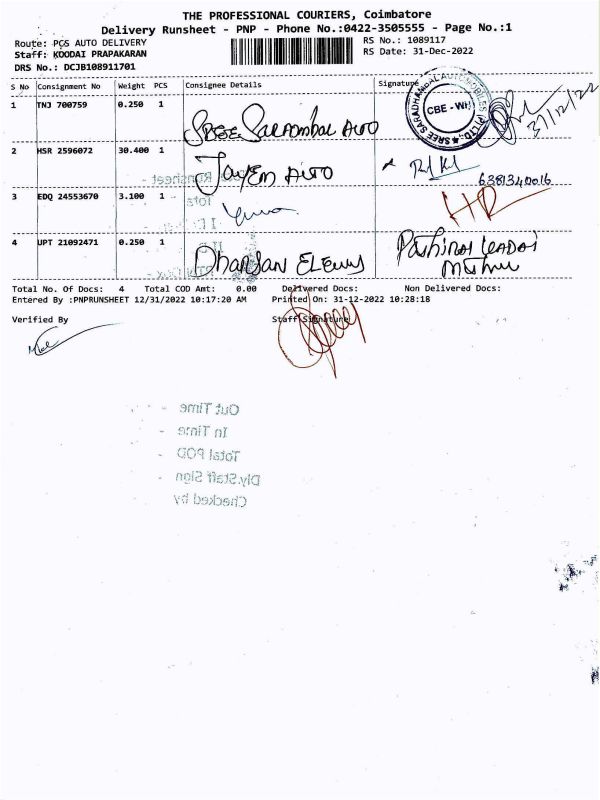 THE PROFESSIONAL COURIERS, Coimbatore
Delivery Runsheet - PNP - Phone No.:0422-3505555 - Page No.:1
Route: PCS AUTO DELIVERY RS No.: 1089117
Staff: KOODAI PRAPAKARAN RS Date: 31-Dec-2022
DRS No.: DCJB108911701
S No Consignment No Weight PCS Consignee Details Signature
1 TNJ 700759 0.250 1 SREE Auto
SREE SARADHAMBAL AUTOMOBILES (P) LTD. CBE - WH 31/12/22
2 HSR 2596072 30.400 1 Jayem Auto 6381340016
3 EDQ 24553670 3.100 1
4 UPT 21092471 0.250 1 Dharsan
Total No. Of Docs: 4 Total COD Amt: 0.00 Delivered Docs: Non Delivered Docs:
Entered By :PNPRUNSHEET 12/31/2022 10:17:20 AM Printed On: 31-12-2022 10:28:18
Verified By Staff Signature
Out Time -
In Time -
Total POD -
Dly.Staff Sign -
Checked by